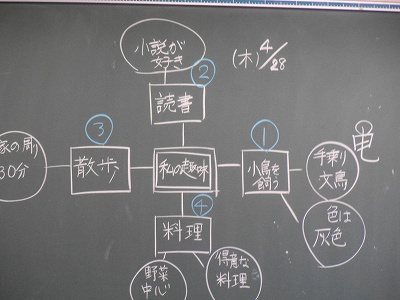 小説が
好き
(木) 4/28
②
読書
③
①
家の周
30分
散歩
私の趣味
小鳥を
飼う
手乗り
文鳥
④
色は
灰色
料理
野菜
中心
得意な
料理